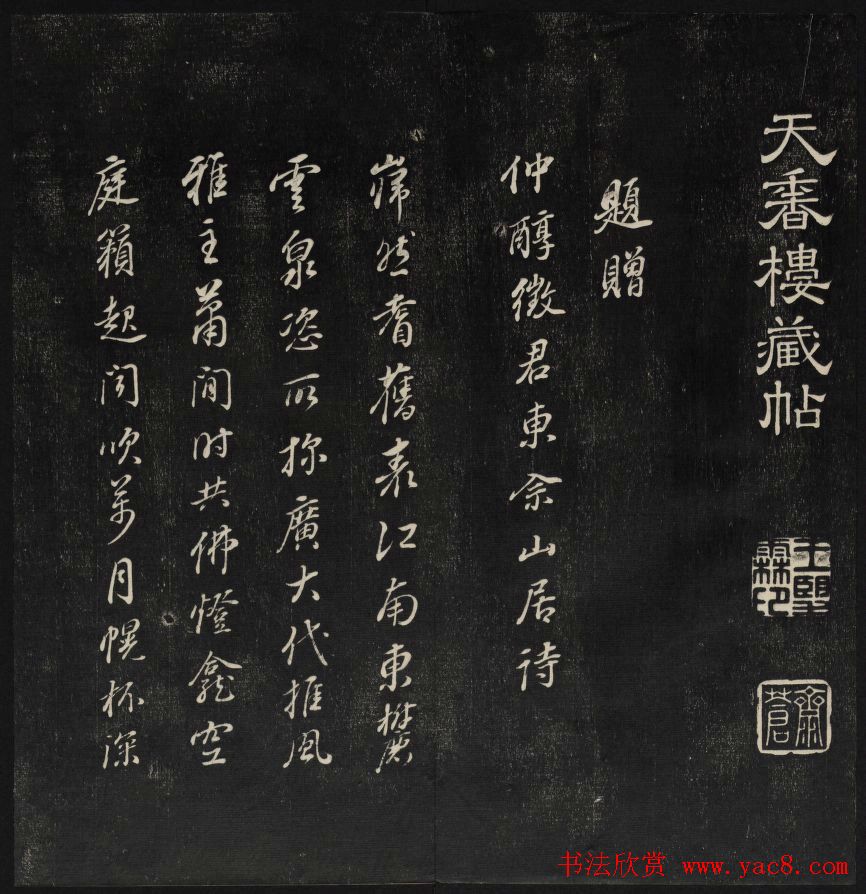 天香樓藏帖
王望霖印
蒼
題贈
仲醇徵君東佘山居詩
巋然耆舊表江南東麓
雲泉恣所探廣大代推風
雅主蕭閒時共佛燈龕空
庭籟起聞吹萬月幌杯深
书法欣赏 www.yac8.com